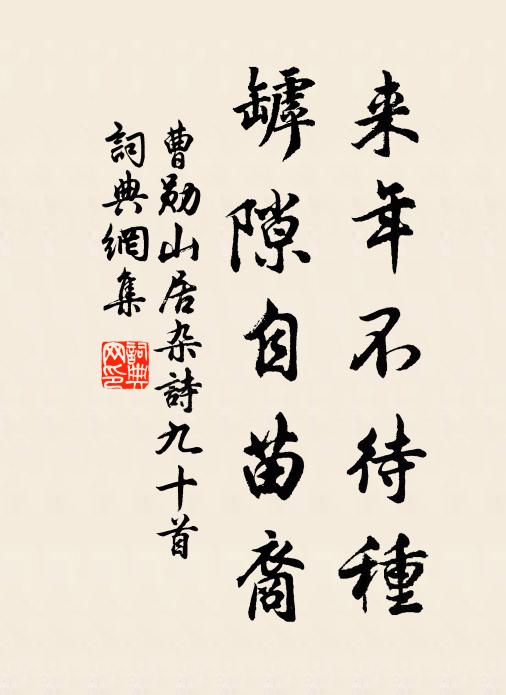 来年不待種
罅隙自苗裔
曹勋山居杂詩九十首
詞典網集
詞典網印